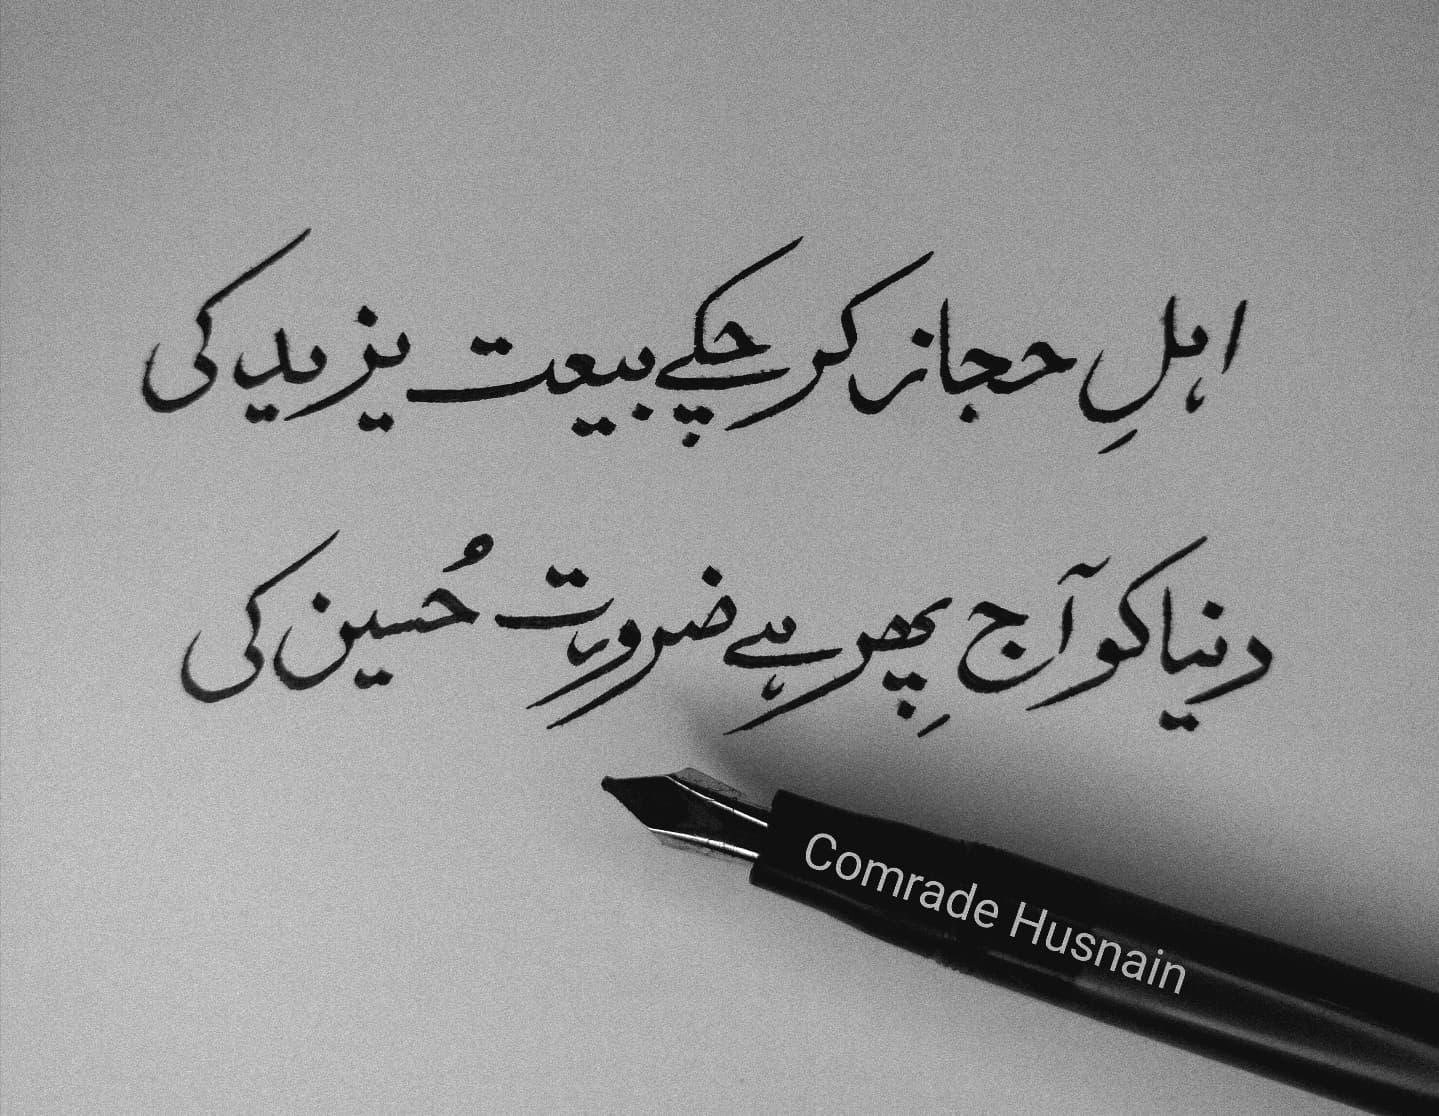 اہلِ حجاز کر چکے بیعت یزید کی
دنیا کو آج پِھر ہے ضرورت حُسین کی
Comrade Husnain